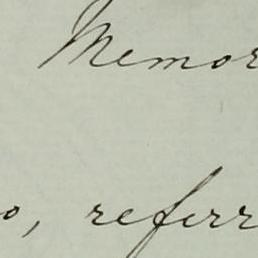 Memor
o, referr